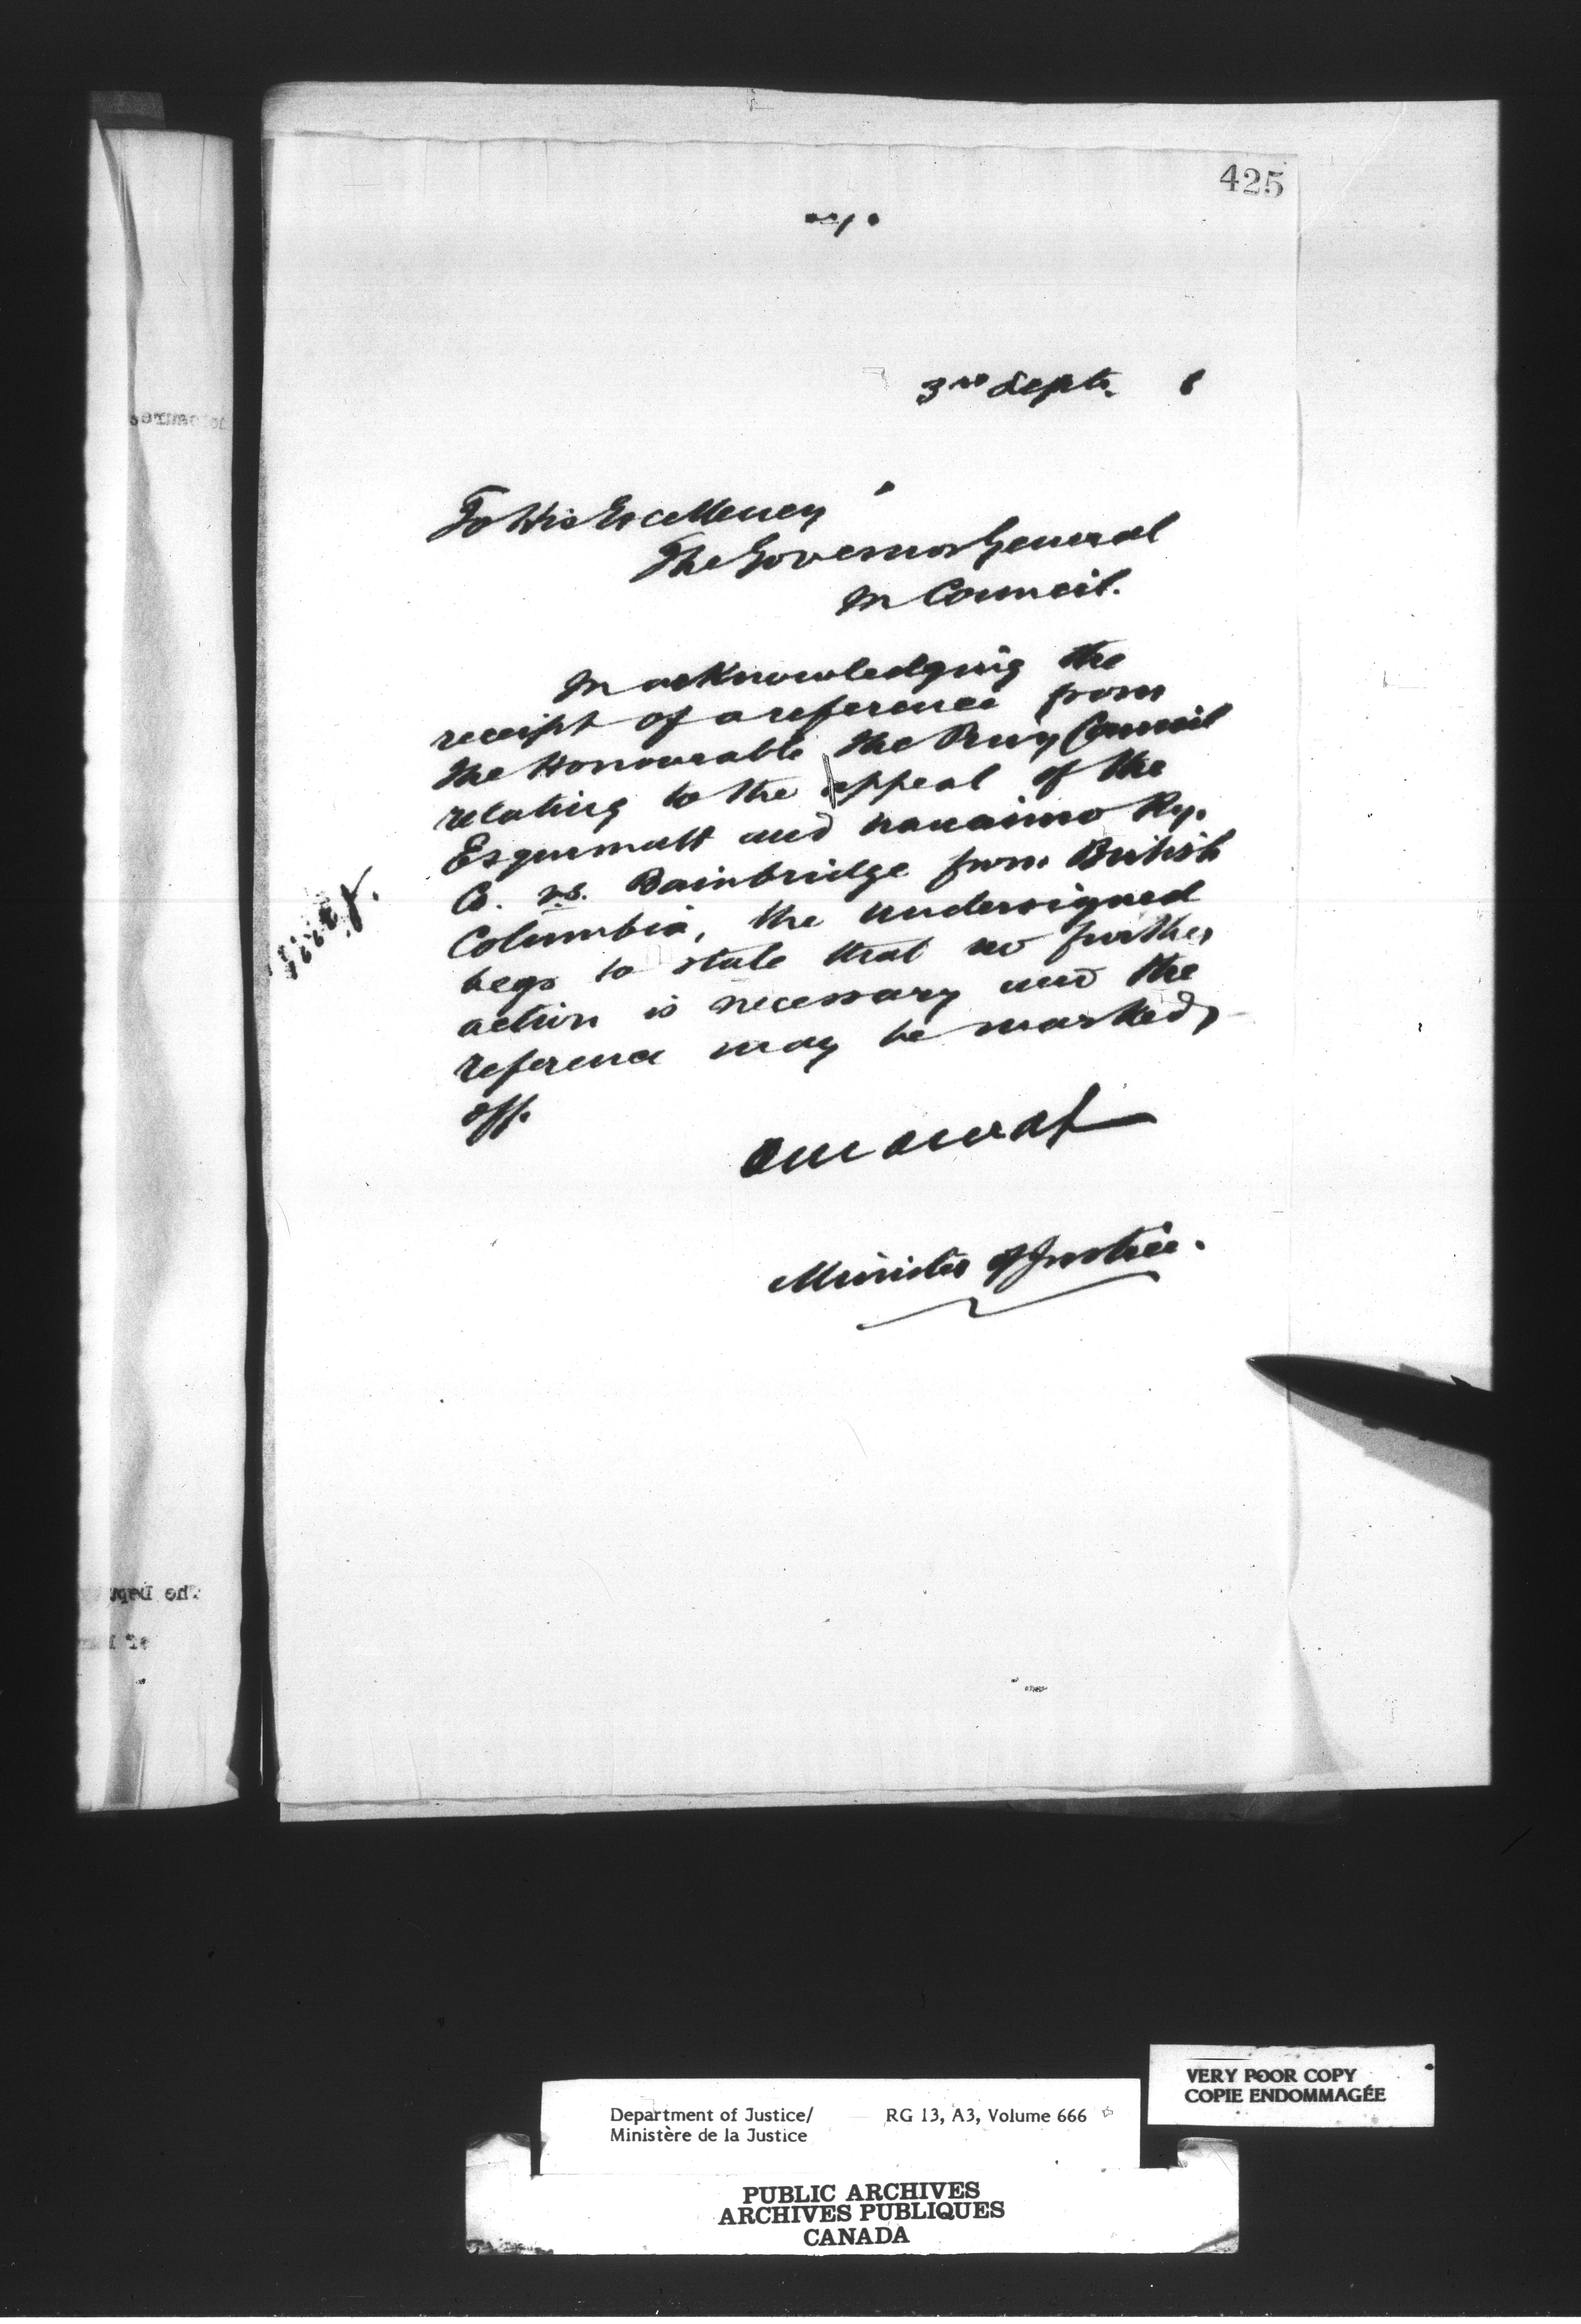 425
3rd Sept.
To His Excellency
The Governor General
in Council.
In acknowledging the
receipt of a reference from
the Honourable the Privy Council
relating to the appeal of the
Esquimalt and Nanaimo Ry.
Co. vs. Bainbridge from British
Columbia, the undersigned
begs to state that no further
action is necessary and the
reference may be marked
off.
O Mowat
Minister of Justice.
VERY POOR COPY
COPIE ENDOMMAGÉE
Department of Justice/ RG 13, A3, Volume 666
Ministère de la Justice
PUBLIC ARCHIVES
ARCHIVES PUBLIQUES
CANADA